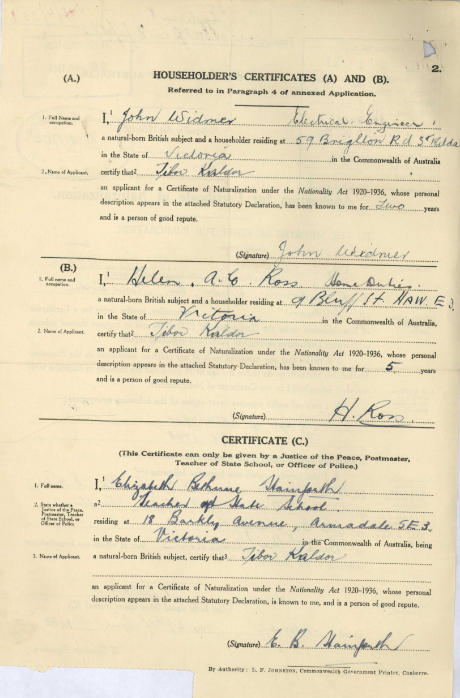 2.
(A.)
HOUSEHOLDER'S CERTIFICATES (A) AND (B).
Referred to in Paragraph 4 of annexed Application.
1. Full Name and occupation.
I,¹ John Widmer Electrical Engineer
a natural-born British subject and a householder residing at 59 Brighton Rd St Kilda
in the State of Victoria in the Commonwealth of Australia
2. Name of Applicant.
certify that² Tibor Kaldor
an applicant for a Certificate of Naturalization under the Nationality Act 1920-1936, whose personal
description appears in the attached Statutory Declaration, has been known to me for Two years
and is a person of good repute.
(Signature) John Widmer
(B.)
1. Full name and occupation.
I,¹ Helen. A. C. Ross Home Duties
a natural-born British subject and a householder residing at 9 Bluff St. Haw. E. 3.
in the State of Victoria in the Commonwealth of Australia,
2. Name of Applicant.
certify that² Tibor Kaldor
an applicant for a Certificate of Naturalization under the Nationality Act 1920-1936, whose personal
description appears in the attached Statutory Declaration, has been known to me for 5 years
and is a person of good repute.
(Signature) H. Ross.
CERTIFICATE (C.)
(This Certificate can only be given by a Justice of the Peace, Postmaster,
Teacher of State School, or Officer of Police.)
1. Full name.
I,¹ Elizabeth Bethune Stainforth
2. State whether a Justice of the Peace, Postmaster, Teacher of State School, or Officer of Police.
a² Teacher of State School
residing at 18 Barkly Avenue, Armadale S.E.3.
in the State of Victoria in the Commonwealth of Australia, being
3. Name of Applicant.
a natural-born British subject, certify that³ Tibor Kaldor
an applicant for a Certificate of Naturalization under the Nationality Act 1920-1936, whose personal
description appears in the attached Statutory Declaration, is known to me, and is a person of good repute.
(Signature) E. B. Stainforth
By Authority: L. F. JOHNSTON, Commonwealth Government Printer, Canberra.